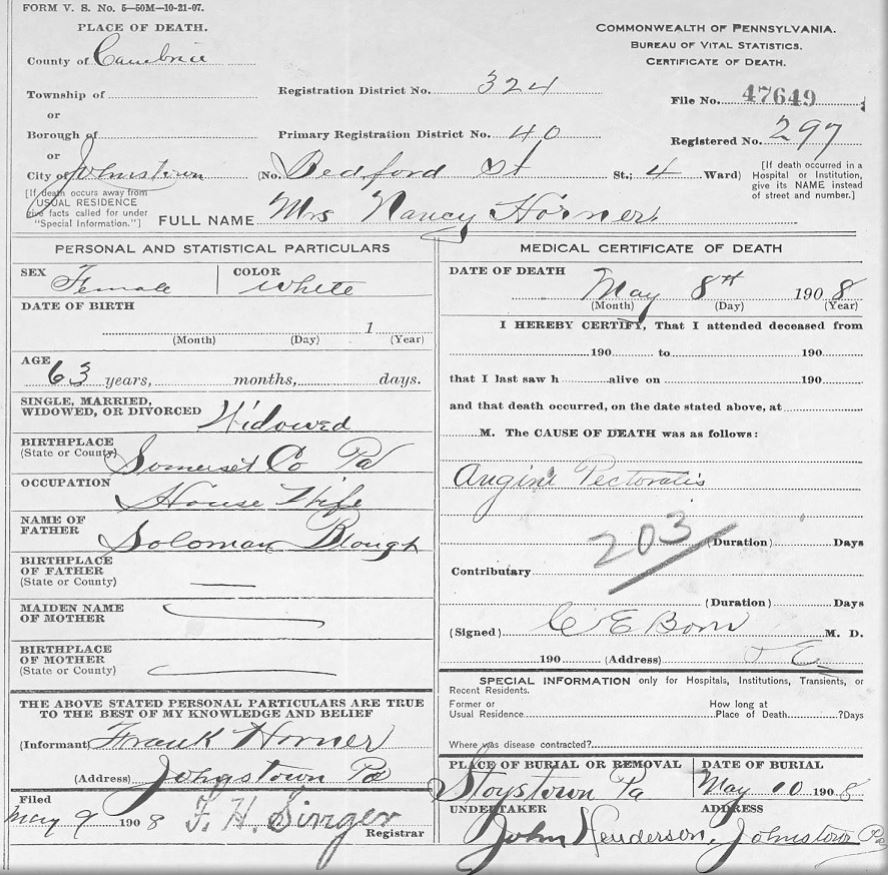 FORM V. S. No. 5—50M—10-21-07.
PLACE OF DEATH.
County of Cambria
Township of
or
Borough of
or
City of Johnstown
[If death occurs away from
USUAL RESIDENCE
give facts called for under
"Special Information."]
COMMONWEALTH OF PENNSYLVANIA.
BUREAU OF VITAL STATISTICS.
CERTIFICATE OF DEATH.
Registration District No. 324
File No. 47649
Primary Registration District No. 40
Registered No. 297
(No. Bedford St St.; 4 Ward)
[If death occurred in a
Hospital or Institution,
give its NAME instead
of street and number.]
FULL NAME Mrs Nancy Horner
PERSONAL AND STATISTICAL PARTICULARS
SEX Female COLOR White
DATE OF BIRTH
1
(Month) (Day) (Year)
AGE
63 years, months, days.
SINGLE, MARRIED,
WIDOWED, OR DIVORCED Widowed
BIRTHPLACE
(State or County) Somerset Co Pa
OCCUPATION House Wife
NAME OF
FATHER Soloman Blough
BIRTHPLACE
OF FATHER
(State or County)
MAIDEN NAME
OF MOTHER
BIRTHPLACE
OF MOTHER
(State or County)
THE ABOVE STATED PERSONAL PARTICULARS ARE TRUE
TO THE BEST OF MY KNOWLEDGE AND BELIEF
(Informant Frank Horner
(Address) Johnstown Pa
Filed
May 9 1908 F. H. Singer
Registrar
MEDICAL CERTIFICATE OF DEATH
DATE OF DEATH
May 8th 1908
(Month) (Day) (Year)
I HEREBY CERTIFY, That I attended deceased from
190 to 190
that I last saw h alive on 190
and that death occurred, on the date stated above, at
M. The CAUSE OF DEATH was as follows:
Angini Pectoralis
203
(Duration) Days
Contributary
(Duration) Days
(Signed) C E Born M. D.
190 (Address)
SPECIAL INFORMATION only for Hospitals, Institutions, Transients, or
Recent Residents.
Former or
Usual Residence
How long at
Place of Death ?Days
Where was disease contracted?
PLACE OF BURIAL OR REMOVAL
Stoystown Pa
DATE OF BURIAL
May 10 1908
UNDERTAKER ADDRESS
John Henderson, Johnstown Pa